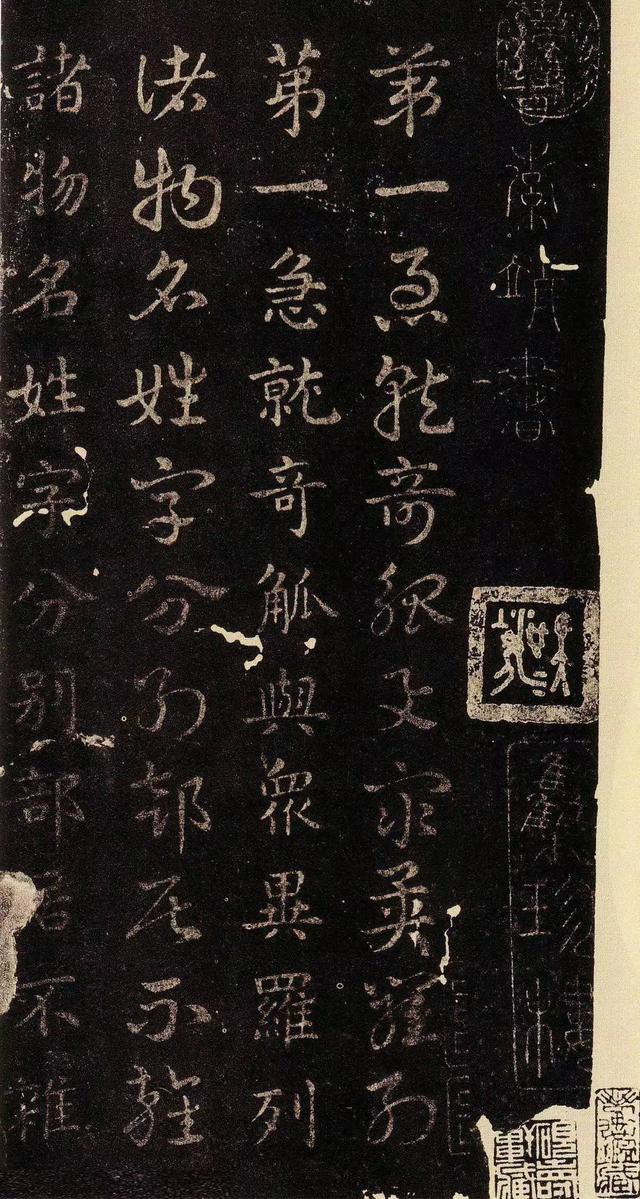 索靖書
第一急就奇觚與衆異羅列
第一急就奇觚與衆異羅列
諸物名姓字分別部居不雜
諸物名姓字分別部居不雜